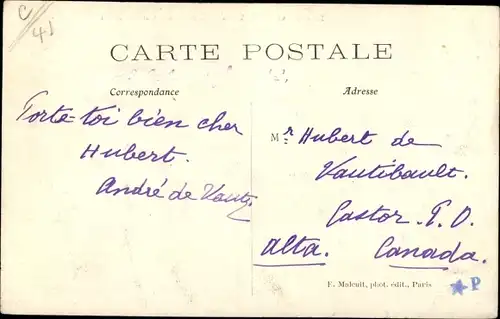 C
41
CARTE POSTALE
Correspondance
Adresse
Porte-toi bien cher
Hubert.
André de Vauti
Mr Hubert de
Vautibault.
Castor. P. O.
Alta. Canada.
F. Malcuit, phot. édit., Paris
P